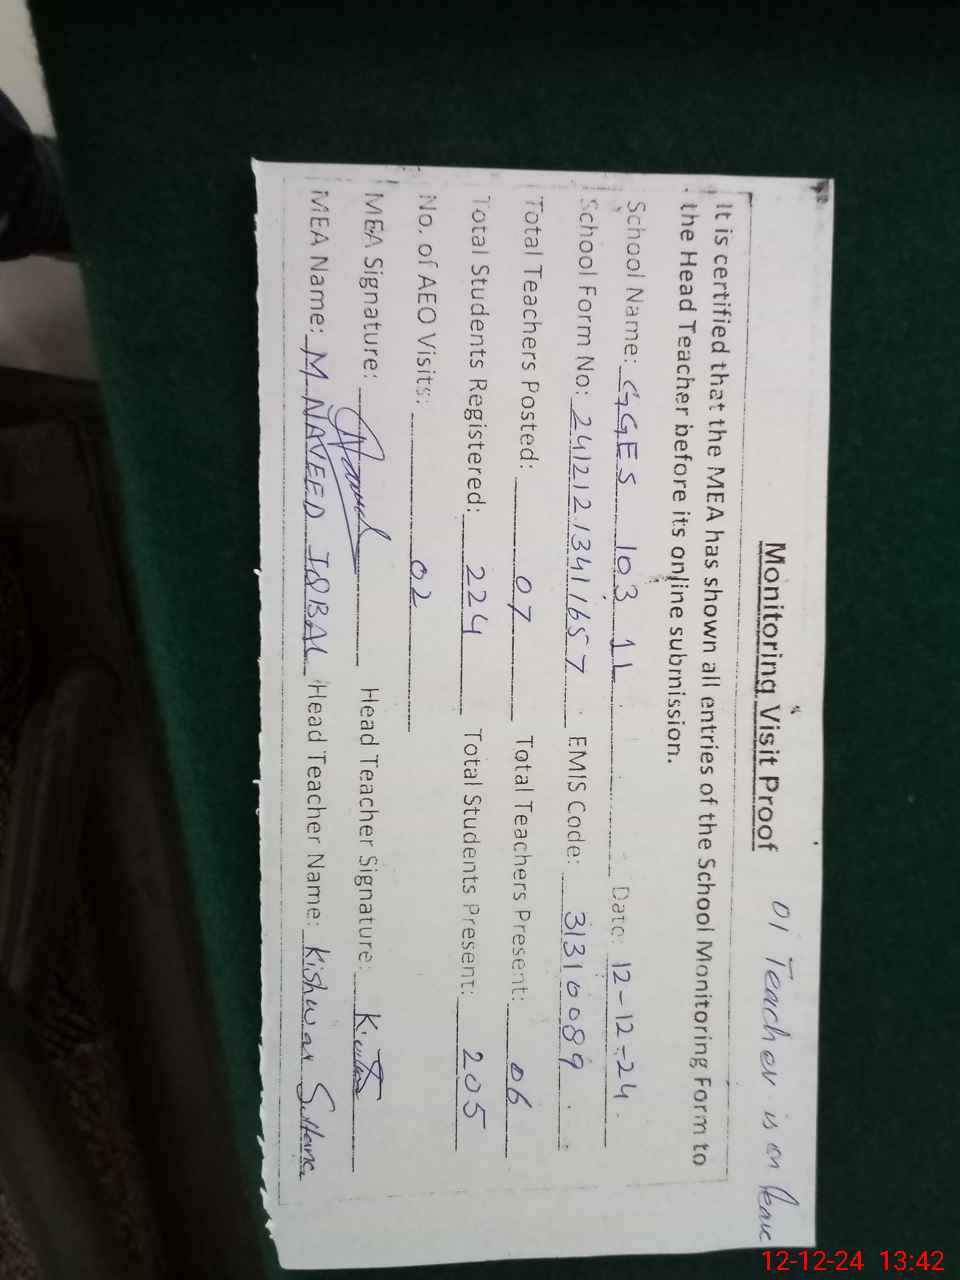 Monitoring Visit Proof 01 Teacher is on leave
It is certified that the MEA has shown all entries of the School Monitoring Form to
the Head Teacher before its online submission.
School Name: GGES 103 1L Date: 12-12-24
School Form No: 24121213411657 EMIS Code: 31310089
Total Teachers Posted: 07 Total Teachers Present: 06
Total Students Registered: 224 Total Students Present: 205
No. of AEO Visits: 02
MEA Signature: Head Teacher Signature:
MEA Name: M. NAVEED IQBAL Head Teacher Name: Kishwar Sultana
12-12-24 13:42